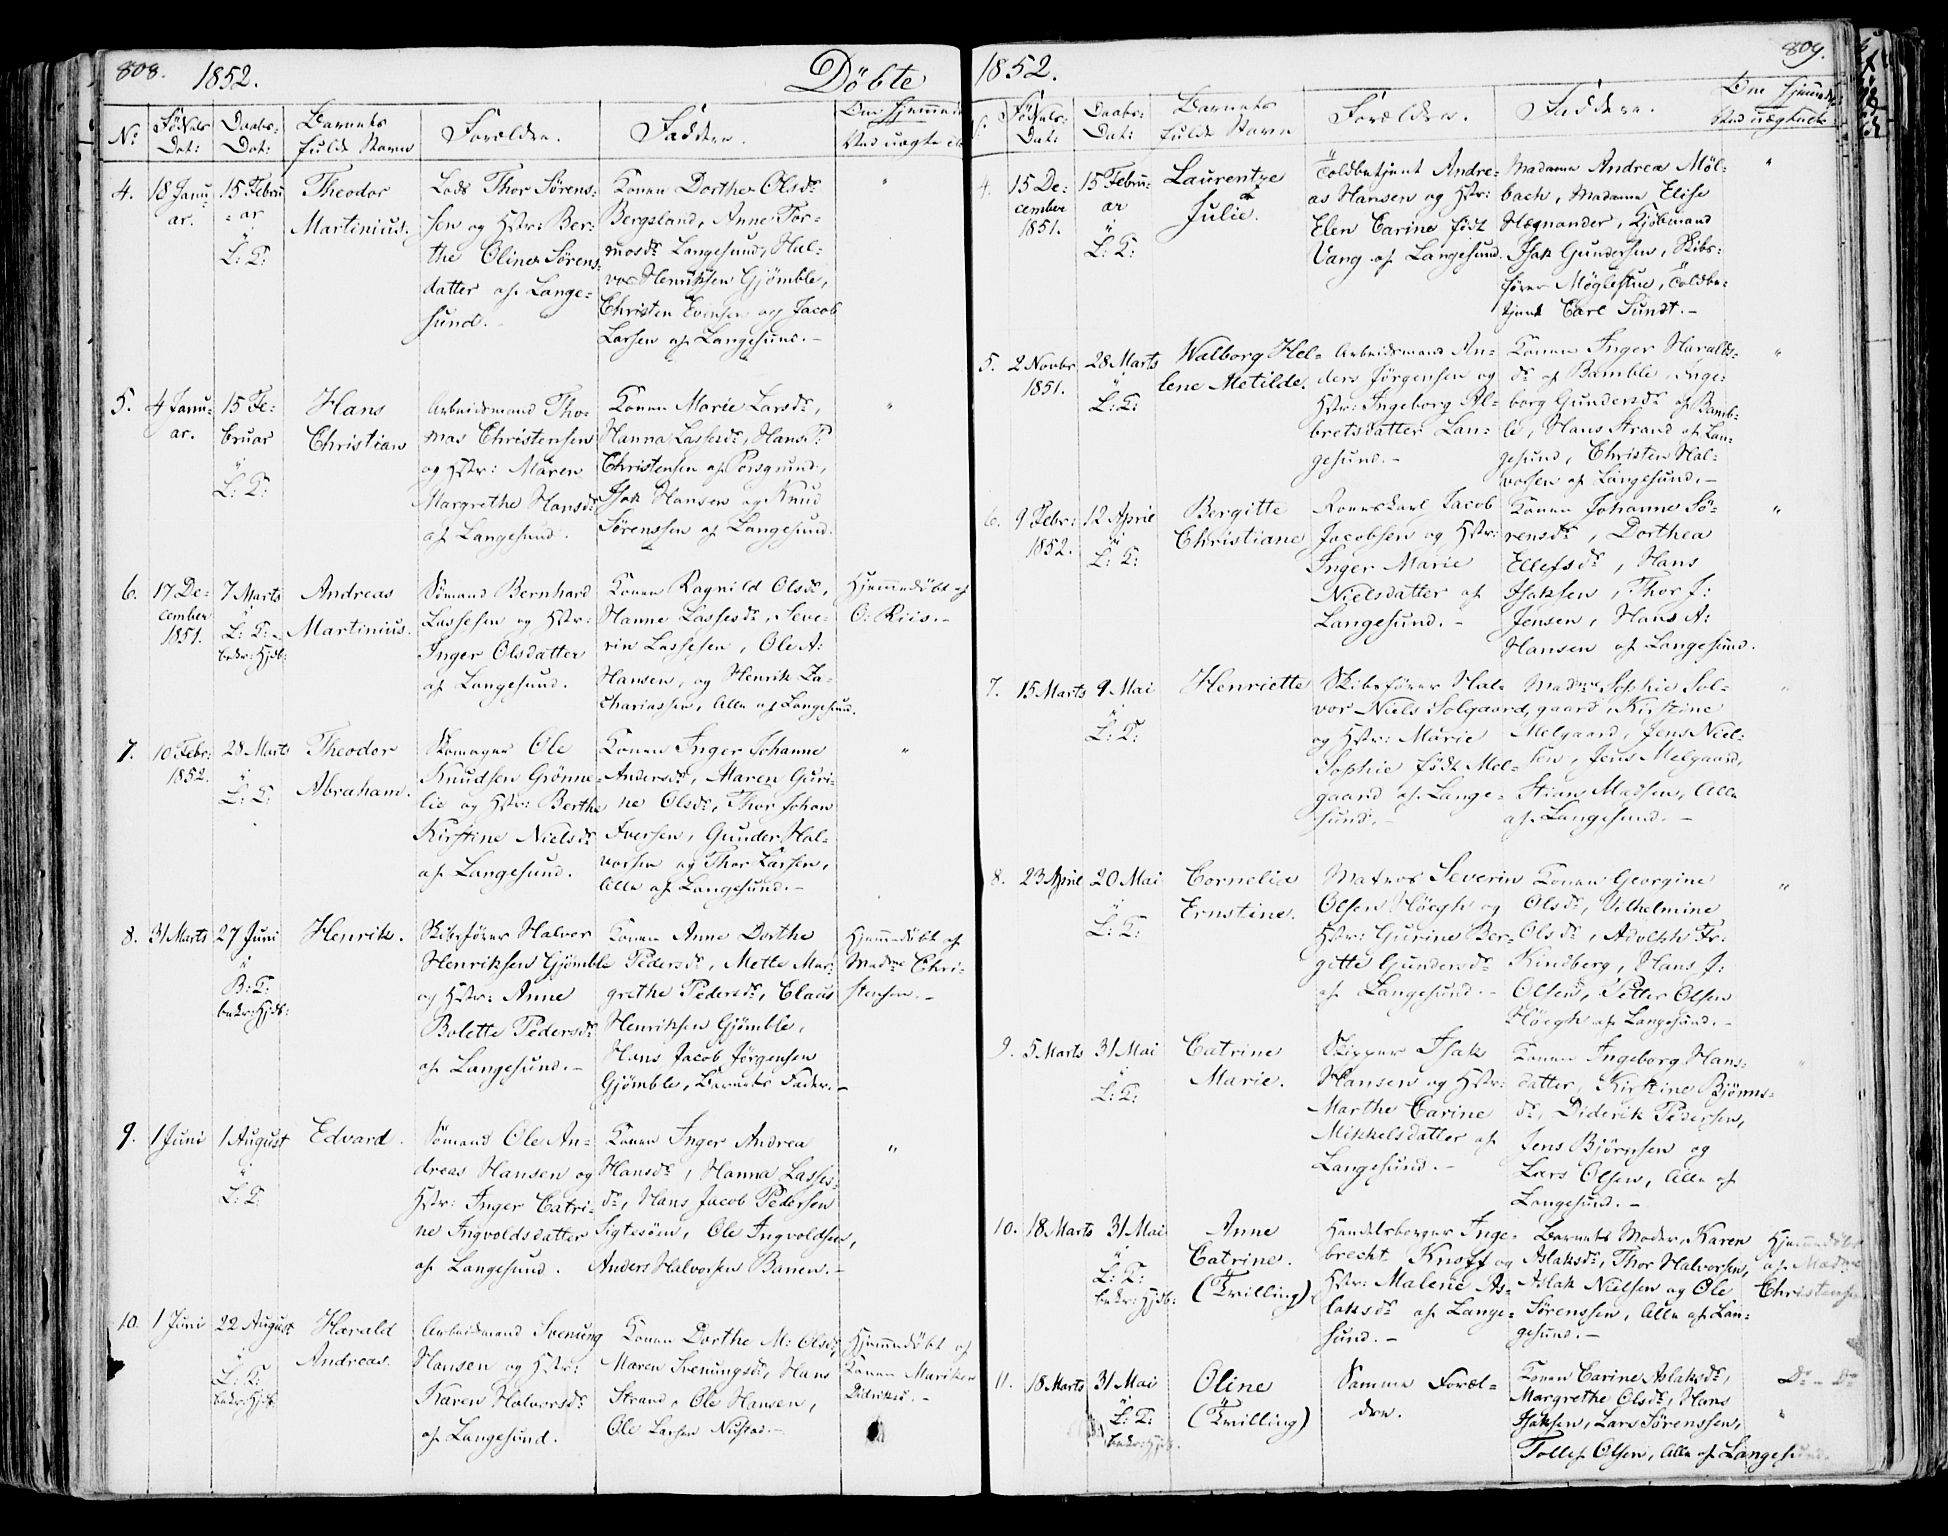 808. 1852. Döbte
No
Fødsels Dat:
Daabs: Dat:
Barnets fulde Navn
Forældre.
Faddere.
Om Hjemmed
4.
18 Janu-
ar.
15 Febru
-ar
"
L: K:
Theodor
Martinius.
Lods Thor Sörens-
sen og Hstr: Ber-
the Oline Sörens-
datter af Lange-
sund.-
Konen Dorthea Olsdr
Bergsland, Anne Tor-
mosdr Langesund, Hal-
vor Henriksen Gjömble,
Christen Evensen og Jacob
Larsen af Langesund.-
"
5.
4 Janu-
ar.
15 Fe-
bruar
"
L: K:
Hans
Christian
Arbeidsmand Tho-
mas Christensen
og Hstr: Maren
Margrethe Hansdr
af Langesund.
Konen Marie Larsdr,
Hanna Lassesdr, Hans P:
Christensen af Porsgrund,
Isak Hansen og Knud
Sörenssen af Langesund.
"
6.
17 De-
cember
1851.
7 Marts
"
L: K:-
bekr: Hjdb:
Andreas
Martinius.
Sömand Bernhard
Lassesen og Hstr:
Inger Olsdatter
af Langesund.
Konen Ragnild Olsdr,
Hanne Lassesdr, Seve-
rin Lassesen, Ole A:
Hansen, og Henrik Za-
chariassen, Alle af Langesund.
Hjemmedöbt af
O: Riis.-
7.
10 Febr:
1852.
28 Marts
"
L: K:
Theodor
Abraham.
Skomager Ole
Knudsen Grönne-
lie og Hstr: Berthe
Kirstine Nielsdr
af Langesund.
Konen Inger Johanne
Andersdr, Maren Guri-
ne Olsdr, Thor Johan
Iversen, Gunder Hal-
vorsen og Thor Larsen,
Alle af Langesund.-
"
8.
31 Marts
27 Juni
"
B: K:
bekr: Hjdb:
Henrik.
Skibsförer Halvor
Henriksen Gjömble
og Hstr: Anne
Bolette Pedersdr
af Langesund.-
Konen Anne Dorthe
Pedersdr, Mette Mar-
grethe Pedersdr, Claus
Henriksen Gjömble,
Hans Jacob Jörgensen
Gjömble, Barnets Fader.-
Hjemmedöbt af
Madme Chri-
stensen.-
9.
1 Juni
1 August
"
L: K:
Edvard.
Sömand Ole An-
dreas Hansen og
Hstr: Inger Catri-
ne Ingvoldsdatter
af Langesund.
Konen Inger Andrea
Hansdr, Hanna Lasses-
dr, Hans Jacob Pedersen
Sigtesöm, Ole Ingvoldsen,
Anders Halvorsen Banen.-
"
10.
1 Juni
22 August
"
L: K:
bekr: Hjdb:
Harald
Andreas.
Arbeidsmand Svenung
Hansen og Hstr:
Karen Halvorsdr
af Langesund.
Konen Dorthe M: Olsdr,
Maren Svenungsdr, Hans
Strand, Ole Hansen,
Ole Larsen Nustad.-
Hjemmedöbt af
Konen Mariken
Didriksd.-
1852. 809.
Fødsels- Dat:
Daabs- Dat:
Barnets fulde Navn
Forældre.
Faddere.
Om Hjemmed
4.
15 De-
cember
1851.
15 Febru-
ar
"
L: K:
Laurentze
Julie.
Toldbetjent Andre-
as Hansen og Hstr:
Elen Carine født
Vang af Langesund.
Madame Andrea Möl-
bach, Madame Elise
Hegnander, Kjöbmand
Isak Gundersen, Skibs-
förer Møglestue, Toldbe-
tjent Carl Sundt.-
"
5.
2 Novbr
1851.
28 Marts
"
L: K:
Walborg Hel-
lene Metilde.
Arbeidsmand An-
ders Jörgensen og
Hstr: Ingeborg Al-
bretsdatter Lan-
gesund.-
Konen Inger Haralds-
dr af Bamble, Inge-
borg Gundersdr af Bamb-
le, Hans Strand af Lan-
gesund, Christen Hal-
vorsen af Langesund.-
"
6.
9 Febr:
1852.
12 April
"
L: K:
Bergitte
Christiane
Roerskarl Jacob
Jacobsen og Hstr:
Inger Marie
Nielsdatter af
Langesund.-
Konen Johanne Sö-
rensdr, Dorthea
Ellefsdr, Hans
Isaksen, Thor J:
Jensen, Hans A:
Hansen af Langesund.
"
7.
15 Marts
9 Mai
"
L: K:
Henriette
Skibsförer Hal-
vor Niels Solgaard,
og Hstr: Marie
Sophie født Mel-
gaard af Lange-
sund.-
Madme Sophie Sol-
gaard, Kirstine
Melgaard, Jens Niel-
sen, Jens Melgaard,
Stian Madsen, Alle
af Langesund.-
"
8.
23 April
20 Mai
"
L: K:
Cornelia
Ernstine.
Matros Severin
Olsen Höegh og
Hstr: Gurine Ber-
gitte Gundersdr
af Langesund.-
Konen Georgine
Olsdr, Vilhelmine
Olsdr, Adolph Fr:
Kindberg, Hans J:
Olsen, Petter Olsen
Höegh af Langesund.-
"
9.
5 Marts
31 Mai
"
L: K:
Catrine
Marie.
Skipper Isak
Hansen og Hstr:
Marthe Carine
Mikkelsdatter af
Langesund.-
Konen Ingeborg Hans-
datter, Kirstine Bjönns-
dr, Diderik Pedersen,
Jens Björnsen og
Lars Olsen, Alle af
Langesund.-
"
10.
18 Marts
31 Mai
"
L: K:
bekr: Hjdb:
Anne
Catrine.
(Tvilling)
Handelsborger Inge-
brecht Knoff og
Hstr: Malene As-
laksdr af Lange-
sund.-
Barnets Moder, Karen
Aslaksdr, Thor Halvorsen,
Aslak Nielsen og Ole
Sörenssen, Alle af Lan-
gesund.-
Hjemmedöbt
af Madme
Christens
11.
18 Marts
31 Mai
"
L: K:
bekr: Hjdb.
Oline
(Tvilling)
Samme Foræl-
dre.
Konen Carine Aslaksdr,
Margrethe Olsdr, Hans
Isaksen, Lars Sörenssen,
Tollef Olsen, Alle af Langesund.
Do - Do
"